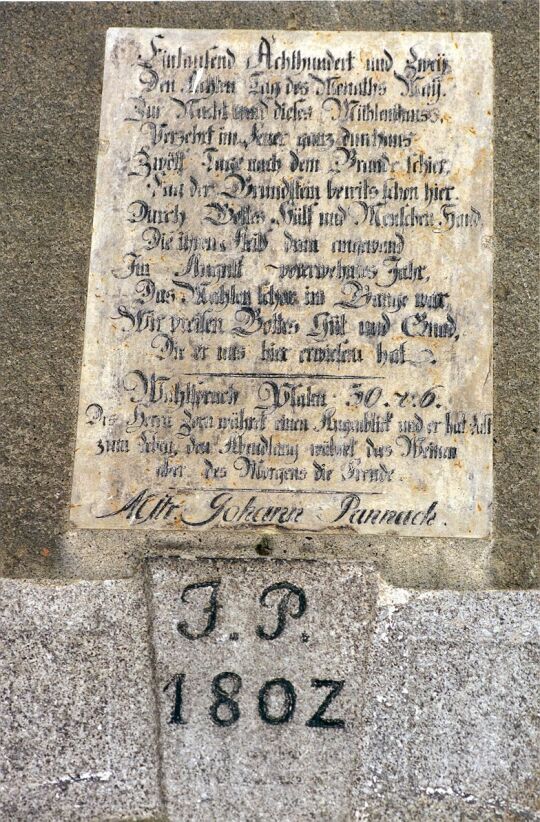 Eintausend Achthundert und Zweÿ
Den Achten Tag des Monaths Maÿ.
Zur Nacht ward dieses Mühlenhauss,
Verzehrt im Feuer ganz durchaus
Zwölf Tage nach dem Brande schier,
der Grundstein bereits schon hier.
Durch Gottes Hülf und Menschen Hand,
Die ihren Fleiß dran angewand
Im August Jahr,
Das Mahlen schon im Gange war
Wir preisen Gottes Güt und Gnad,
Die er uns hier erwiesen hat.
Wahlspruch Psalm 30. v. 6.
Des Herrn Zorn währet einen Augenblick und er hat Lust
zum Leben, den Abendlang währet das Weinen
aber des Morgens die Freude.
Mstr. Johann Pannach.
J. P.
1802